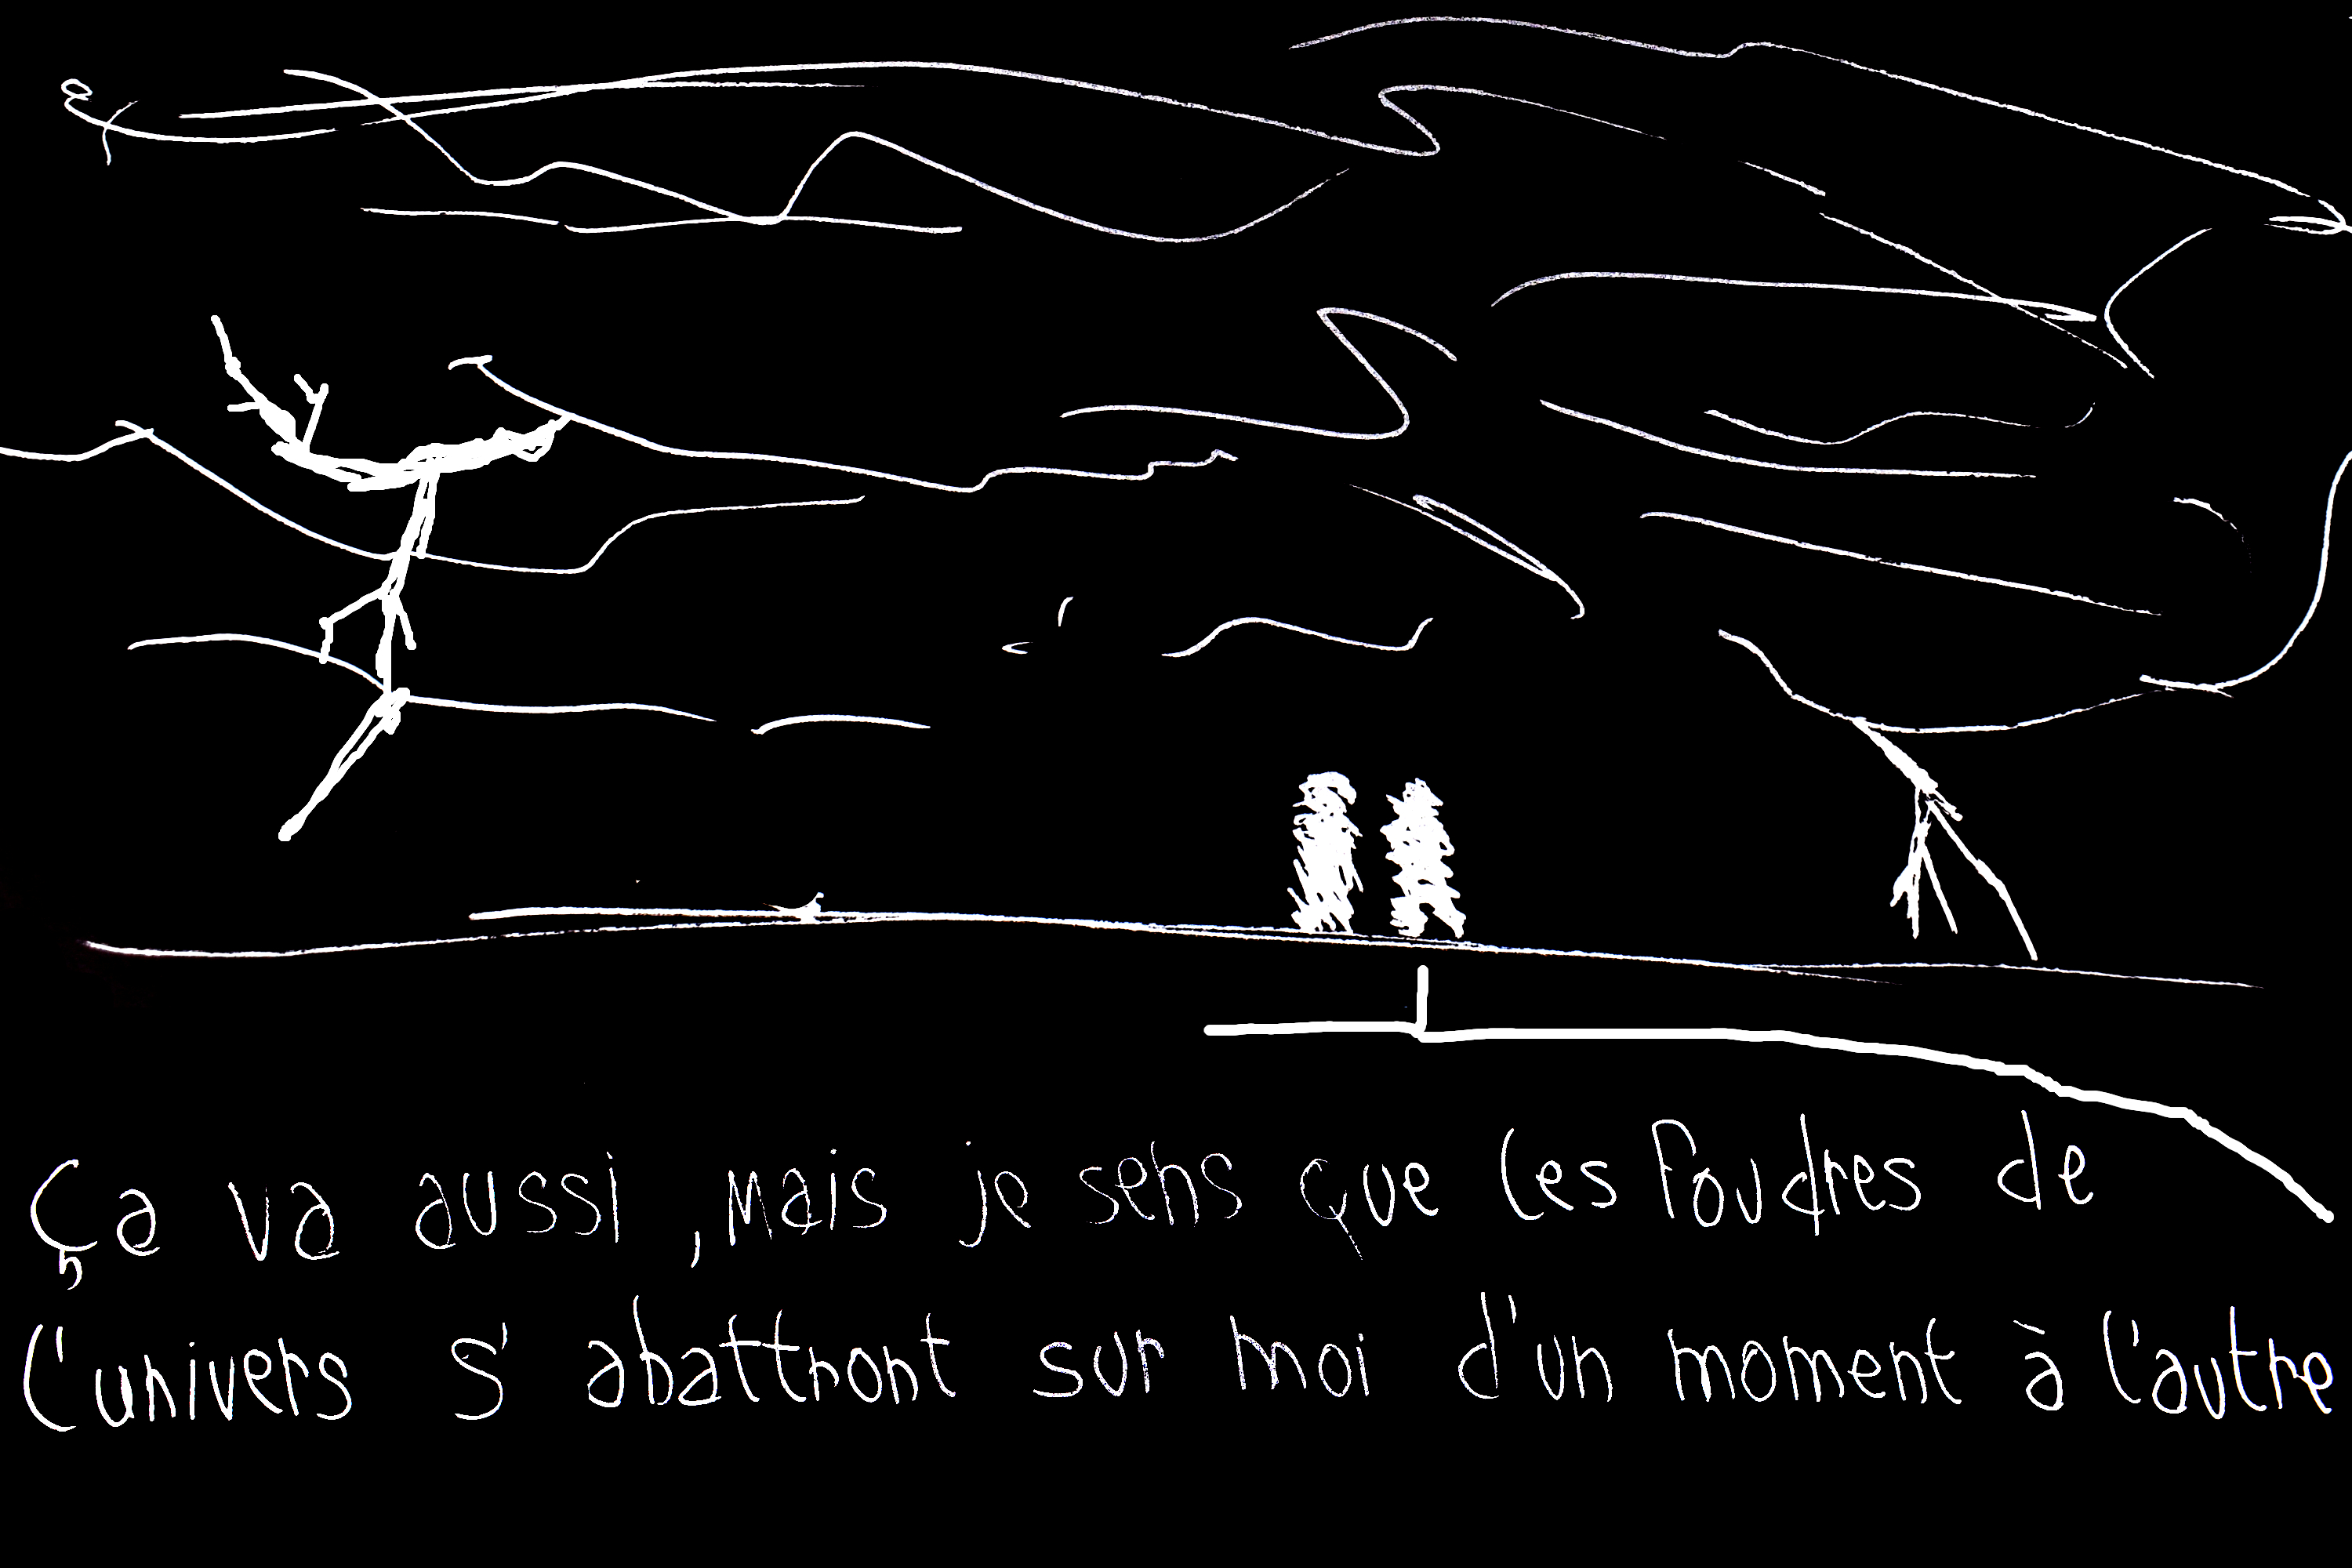 Ça va aussi, mais je sens que les foudres de
l'univers s'abattront sur moi d'un moment à l'autre